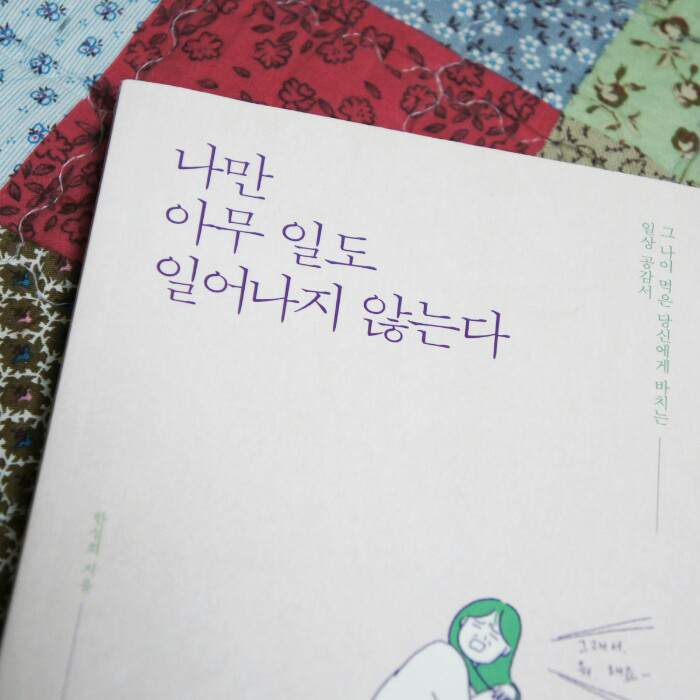 나만
아무 일도
일어나지 않는다
그 나이 먹은 당신에게 바치는
일상 공감서
한설희 지음
그래서,
뭐 해요~